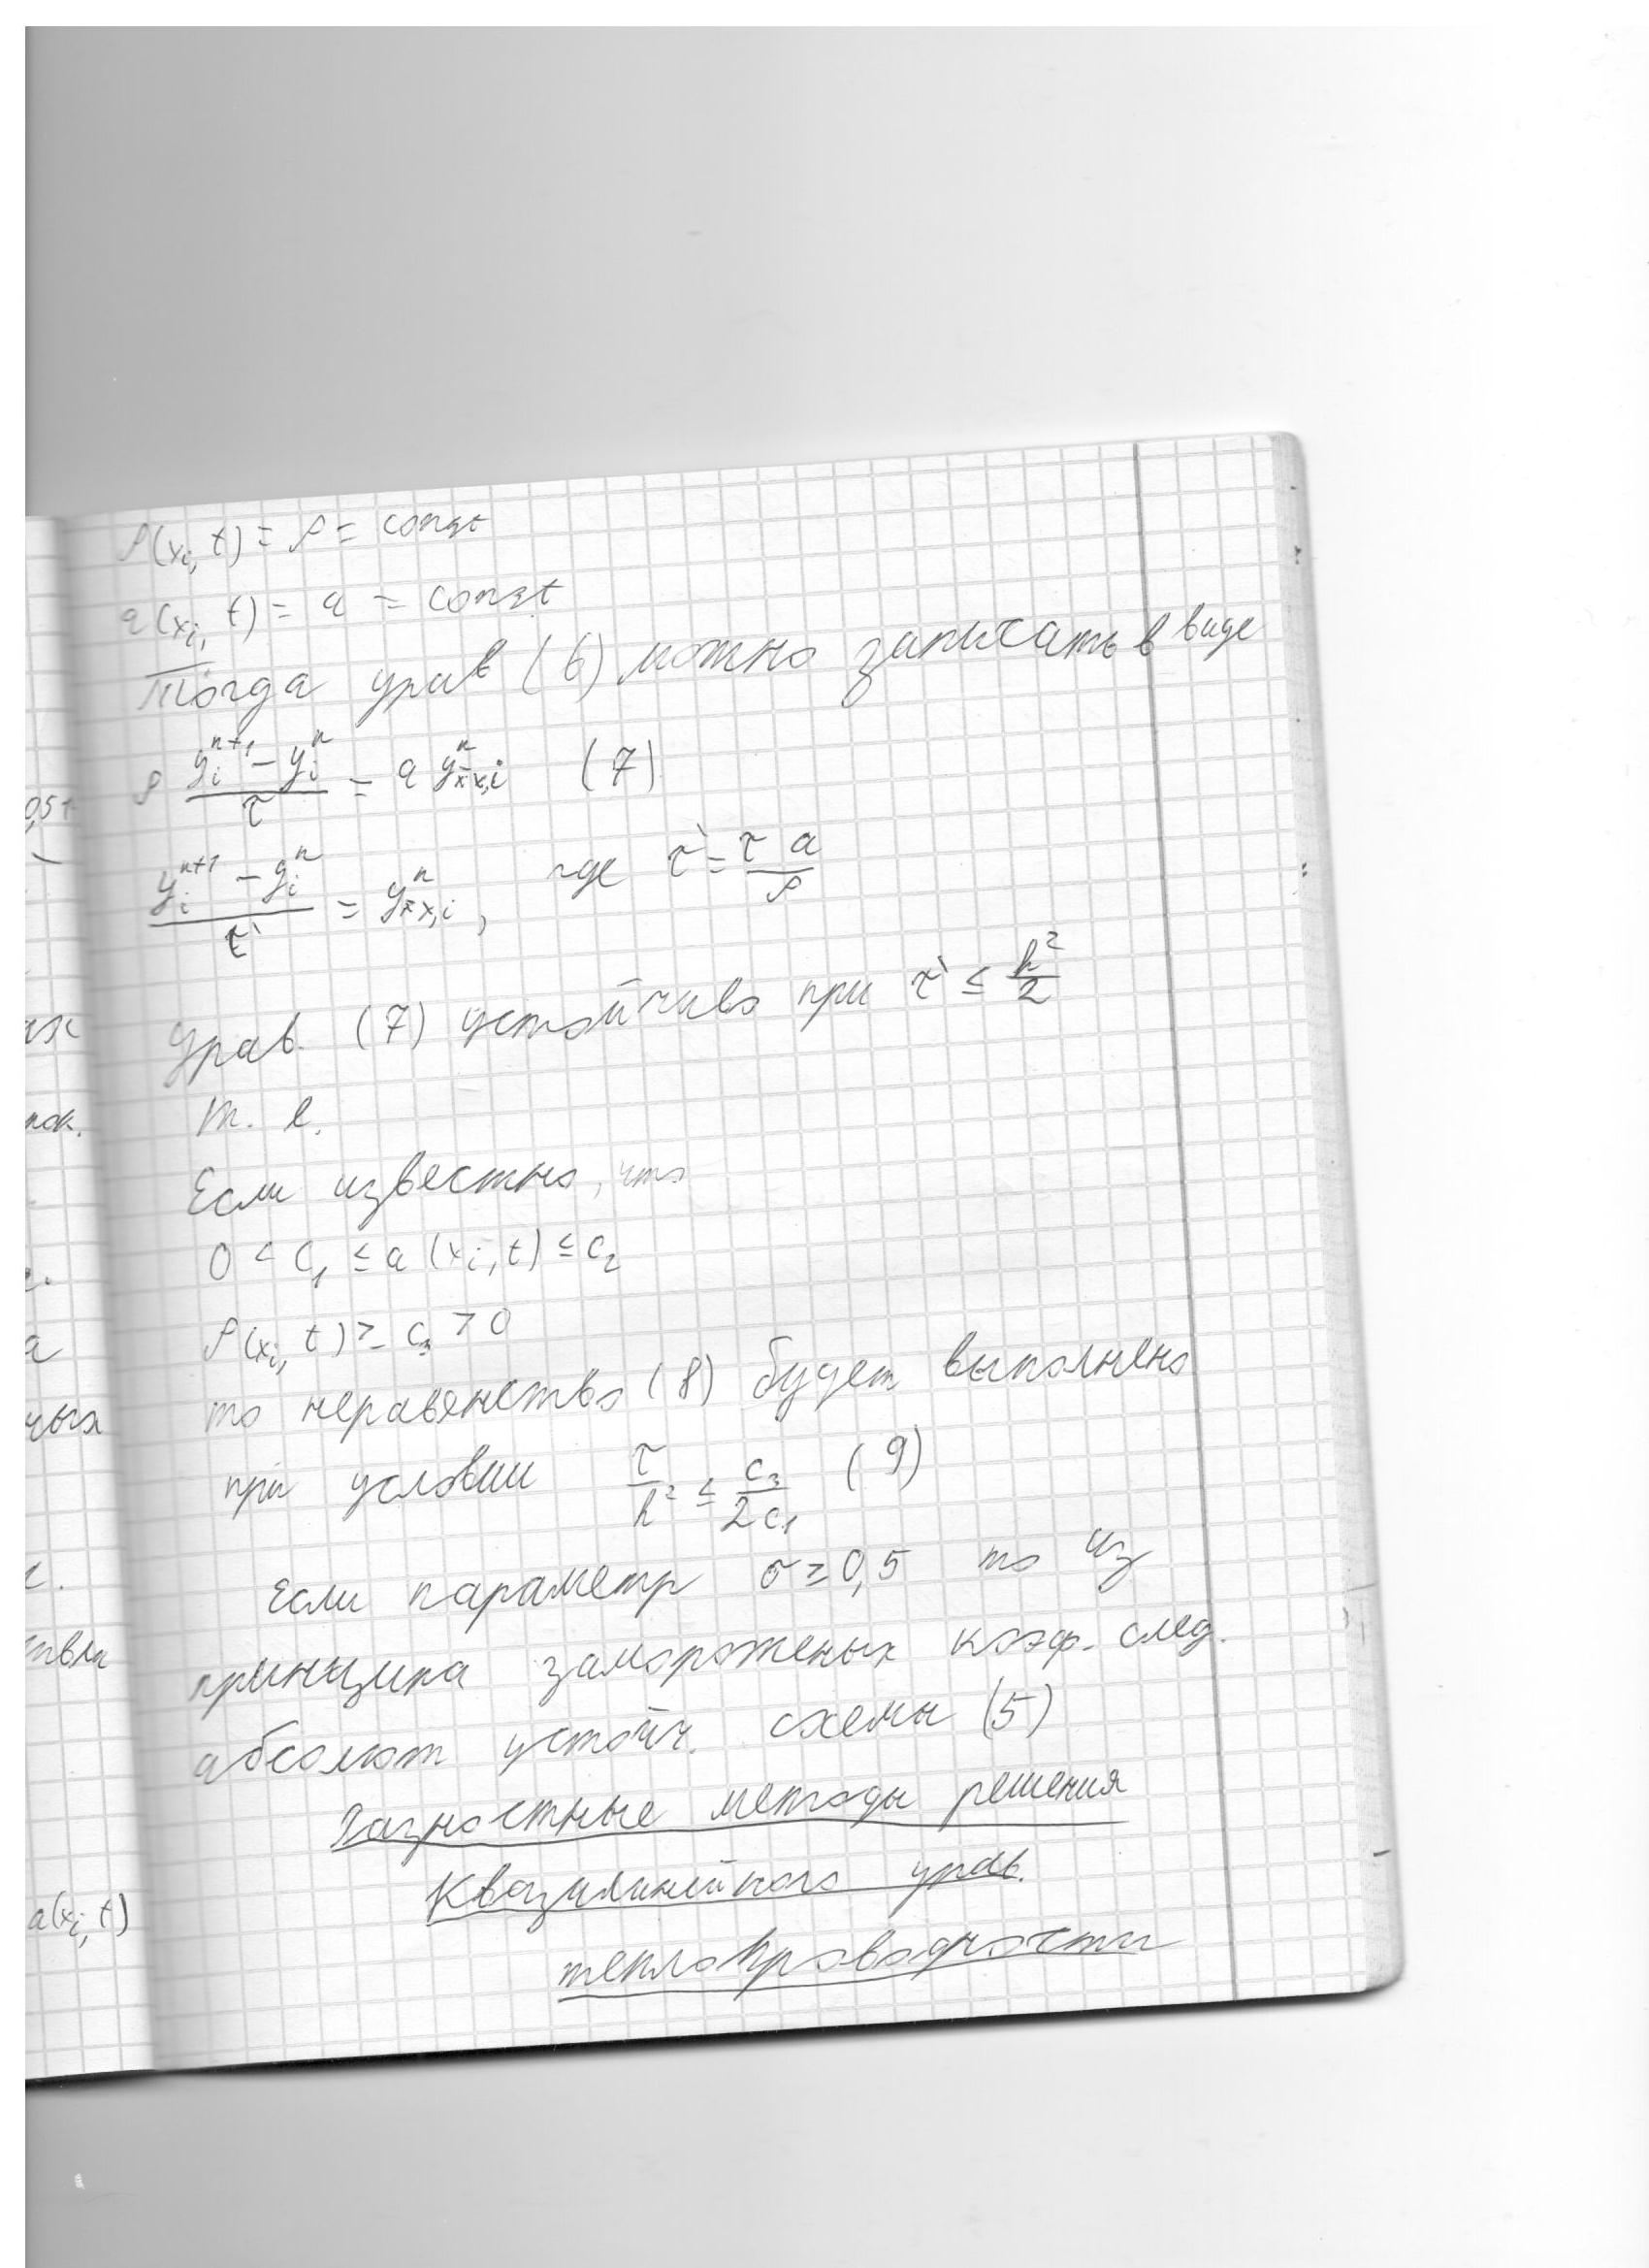 ρ(xᵢ, t) = ρ = const
a(xᵢ, t) = a = const
Тогда урав (6) можно записать в виде
ρ (yᵢⁿ⁺¹ − yᵢⁿ)/τ = a yⁿ_x̄x,i (7)
(yᵢⁿ⁺¹ − yᵢⁿ)/τ` = yⁿ_x̄x,i , где τ` = τ a/ρ
Урав. (7) устойчиво при τ` ≤ h²/2
т. е.
Если известно, что
0 < c₁ ≤ a (xᵢ, t) ≤ c₂
ρ(xᵢ, t) ≥ c₃ > 0
то неравенство (8) будет выполнено
при условии τ/h² ≤ c₃/2c₁ (9)
Если параметр σ ≥ 0,5 то из
принципа замороженых коэф. след.
абсолют устойч. схемы (5)
Разностные методы решения
Квазилинейного урав.
теплопроводности
0,5+
ых
пок.
а
ных
a(xᵢ, t)